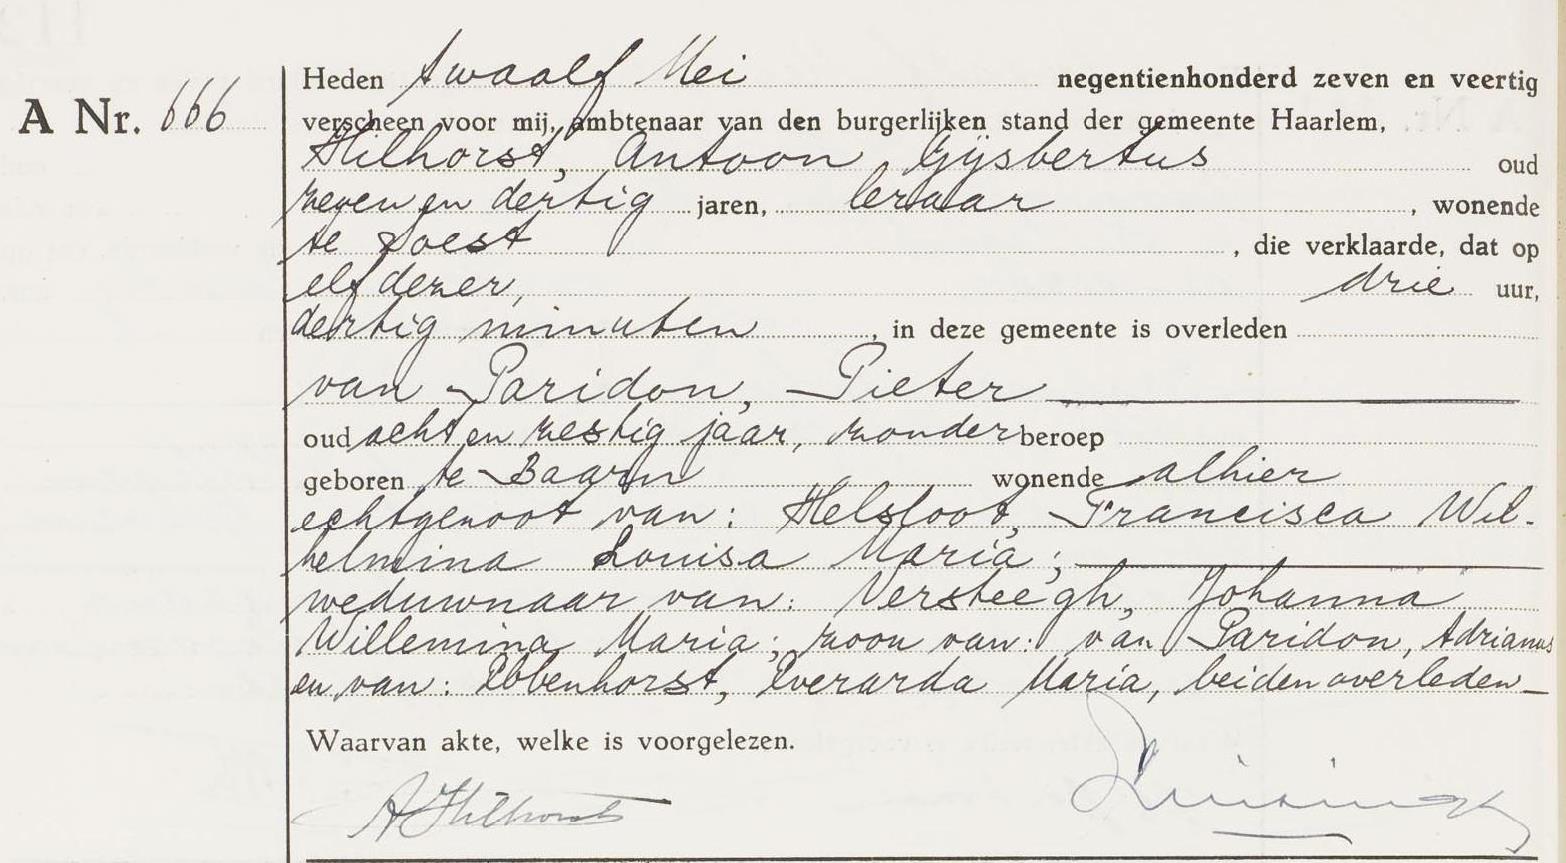 A Nr. 666
Heden twaalf Mei negentienhonderd zeven en veertig
verscheen voor mij, ambtenaar van den burgerlijken stand der gemeente Haarlem,
Hilhorst, Antoon Gijsbertus oud
zeven en dertig jaren, leraar, wonende
te Soest, die verklaarde, dat op
elf dezer, drie uur,
dertig minuten, in deze gemeente is overleden
van Paridon, Pieter
oud acht en zestig jaar, zonder beroep
geboren te Baarn wonende alhier
echtgenoot van: Helsloot, Francisca Wil-
helmina Louisa Maria;
weduwnaar van: Versteegh, Johanna
Willemina Maria; zoon van: van Paridon, Adrianus
en van: Ebbenhorst, Everarda Maria, beiden overleden
Waarvan akte, welke is voorgelezen.
A Hilhorst